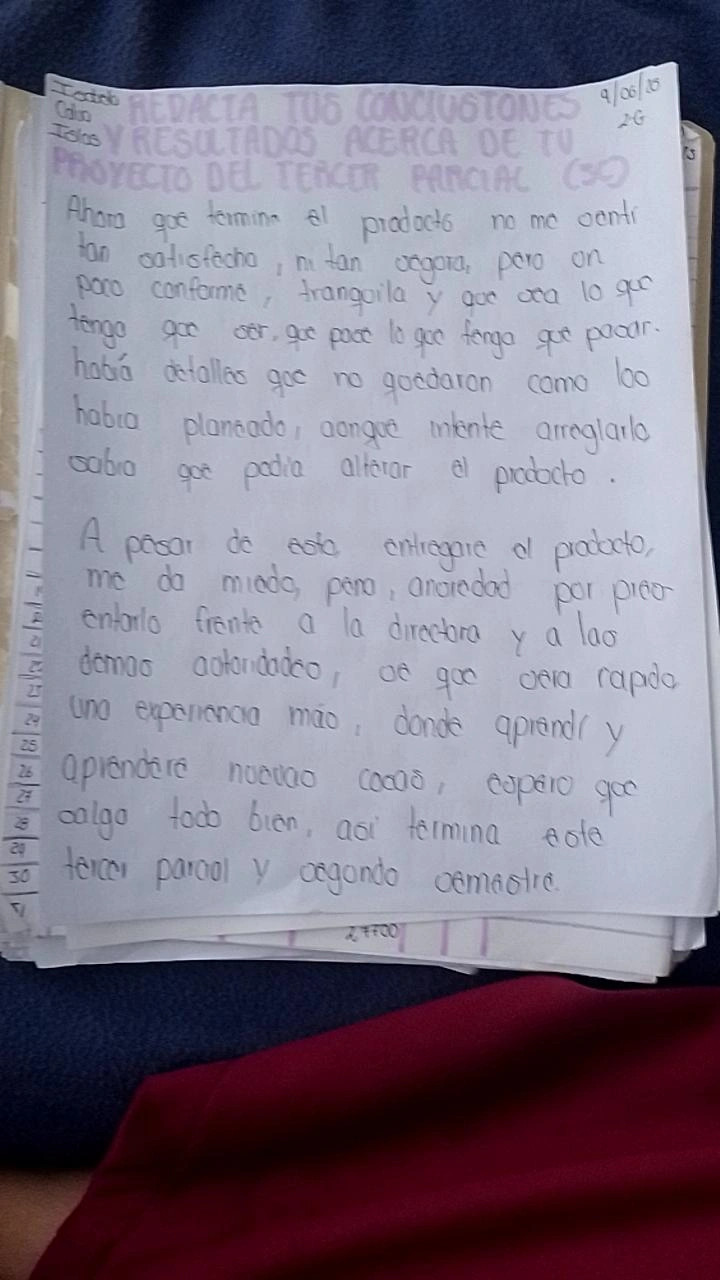 Calva
Islas
9/06/25
2-G
REDACTA TUS CONCLUSIONES
Y RESULTADOS ACERCA DE TU
PROYECTO DEL TERCER PARCIAL (SC)
Ahora que termine el producto no me senti
tan satisfecha, ni tan segura, pero un
poco conforme, tranquila y que sea lo que
tenga que ser, que pase lo que tenga que pasar.
había detalles que no quedaron como los
habia planeado, aunque intente arreglarlo
sabia que podia alterar el producto.
A pesar de esto, entregare el producto,
me da miedo, pena, ansiedad por pres-
entarlo frente a la directora y a las
demas autoridades, se que sera rapido
una experiencia más, donde aprendí y
aprendere nuevas cosas, espero que
salga todo bien, asi termina este
tercer parcial y segundo semestre.
24
25
26
27
28
29
30